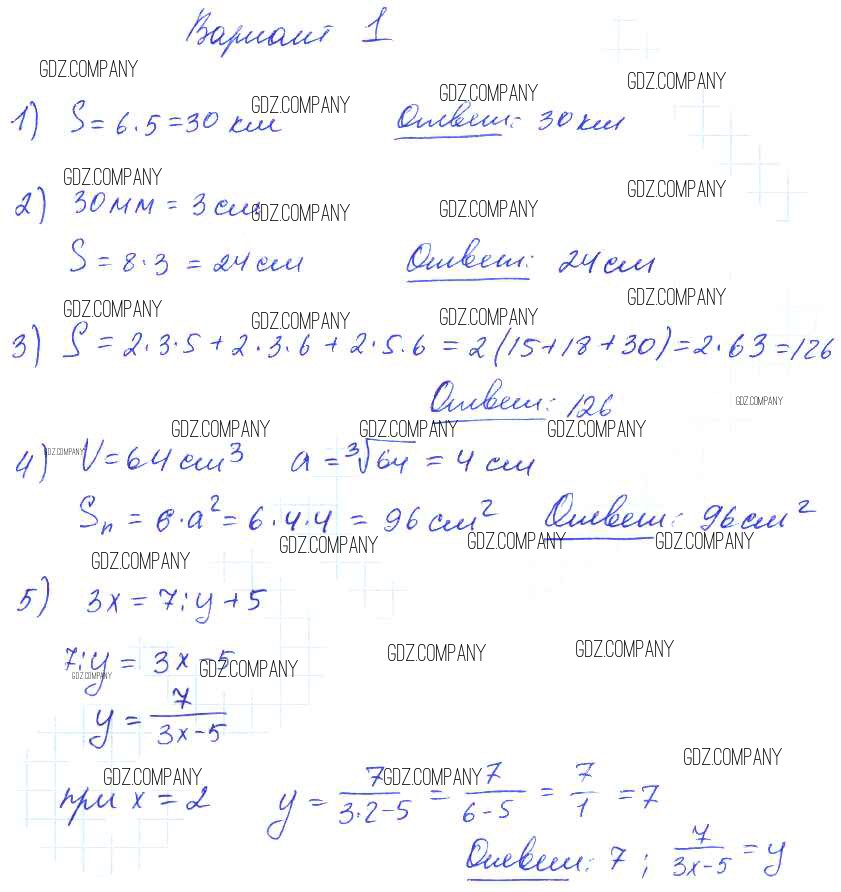 Вариант 1
GDZ.COMPANY
GDZ.COMPANY GDZ.COMPANY GDZ.COMPANY
1) S = 6·5 = 30 км Ответ: 30 км
GDZ.COMPANY GDZ.COMPANY
2) 30 мм = 3 см
GDZ.COMPANY GDZ.COMPANY
S = 8·3 = 24 см Ответ: 24 см
GDZ.COMPANY GDZ.COMPANY GDZ.COMPANY GDZ.COMPANY
3) S = 2·3·5 + 2·3·6 + 2·5·6 = 2(15+18+30) = 2·63 = 126
Ответ: 126
GDZ.COMPANY
GDZ.COMPANY GDZ.COMPANY GDZ.COMPANY
GDZ.COMPANY
4) V = 64 см³ a = ³√64 = 4 см
Sп = 6·a² = 6·4·4 = 96 см² Ответ: 96 см²
GDZ.COMPANY GDZ.COMPANY GDZ.COMPANY GDZ.COMPANY
5) 3x = 7:y + 5
GDZ.COMPANY GDZ.COMPANY
7:y = 3x - 5
GDZ.COMPANY GDZ.COMPANY
y = 7/(3x-5)
GDZ.COMPANY GDZ.COMPANY GDZ.COMPANY
при x = 2 y = 7/(3·2-5) = 7/(6-5) = 7/1 = 7
Ответ: 7; 7/(3x-5) = y